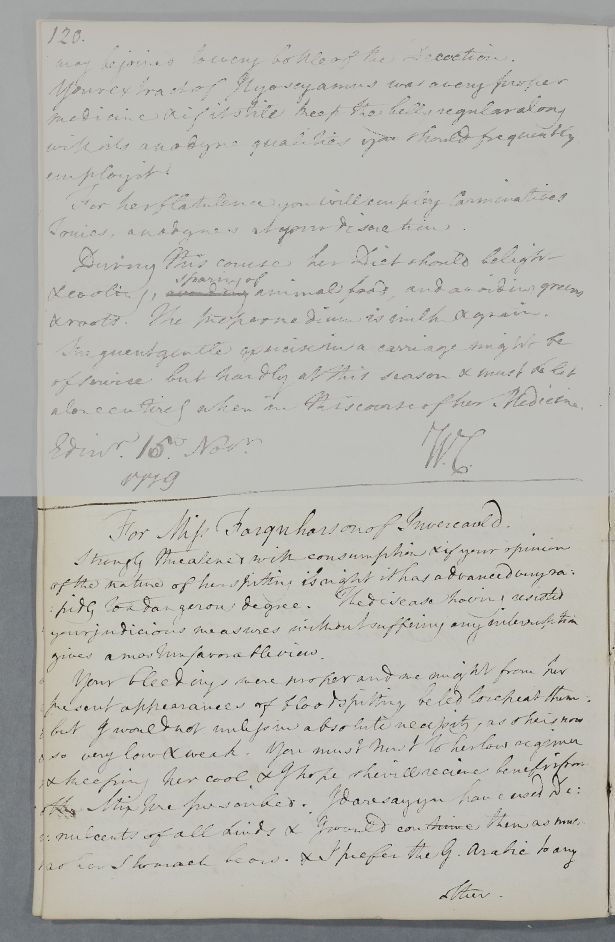 120.
may be joined to every bottle of the Decoction.
Your extract of Hyoscyamus was a very proper
medicine & if it still keep the belly regular along
with its anodyne qualities you should frequently
employ it.
For her flatulence you will employ Carminatives
Tonics, anodynes at your discretion.
During this course her Diet should be light
sparing of
animal food, and avoiding greens
& roots. The proper medium is milk & grain.
Frequent gentle exercise in a carriage might be
of service but hardly at this season & must be let
alone entirely when in this course of her Medicine.
Edinr. 15. Novr. W.C.
1779
For Miss Farquharson of Invercauld.
Strongly threatened with consumption & if your opinion
of the nature of her spitting is right it has advanced very ra:
:pidly to a dangerous degree. The disease having resisted
your judicious measures without suffering any interruption
gives a most unfavorable view.
Your bleedings were proper and we might from her
present appearances of bloodspitting be led to repeat them
but I would not unless in absolute necessity, as she is now
so very low & weak. You must trust to her low regimen
& keeping her cool & I hope she will recieve benefit from
the Mixture prescribed. I dare say you have used De:
:mulcents of all kinds & I would continue them as much
as her Stomach bears. & I prefer the G. Arabic to any
other.